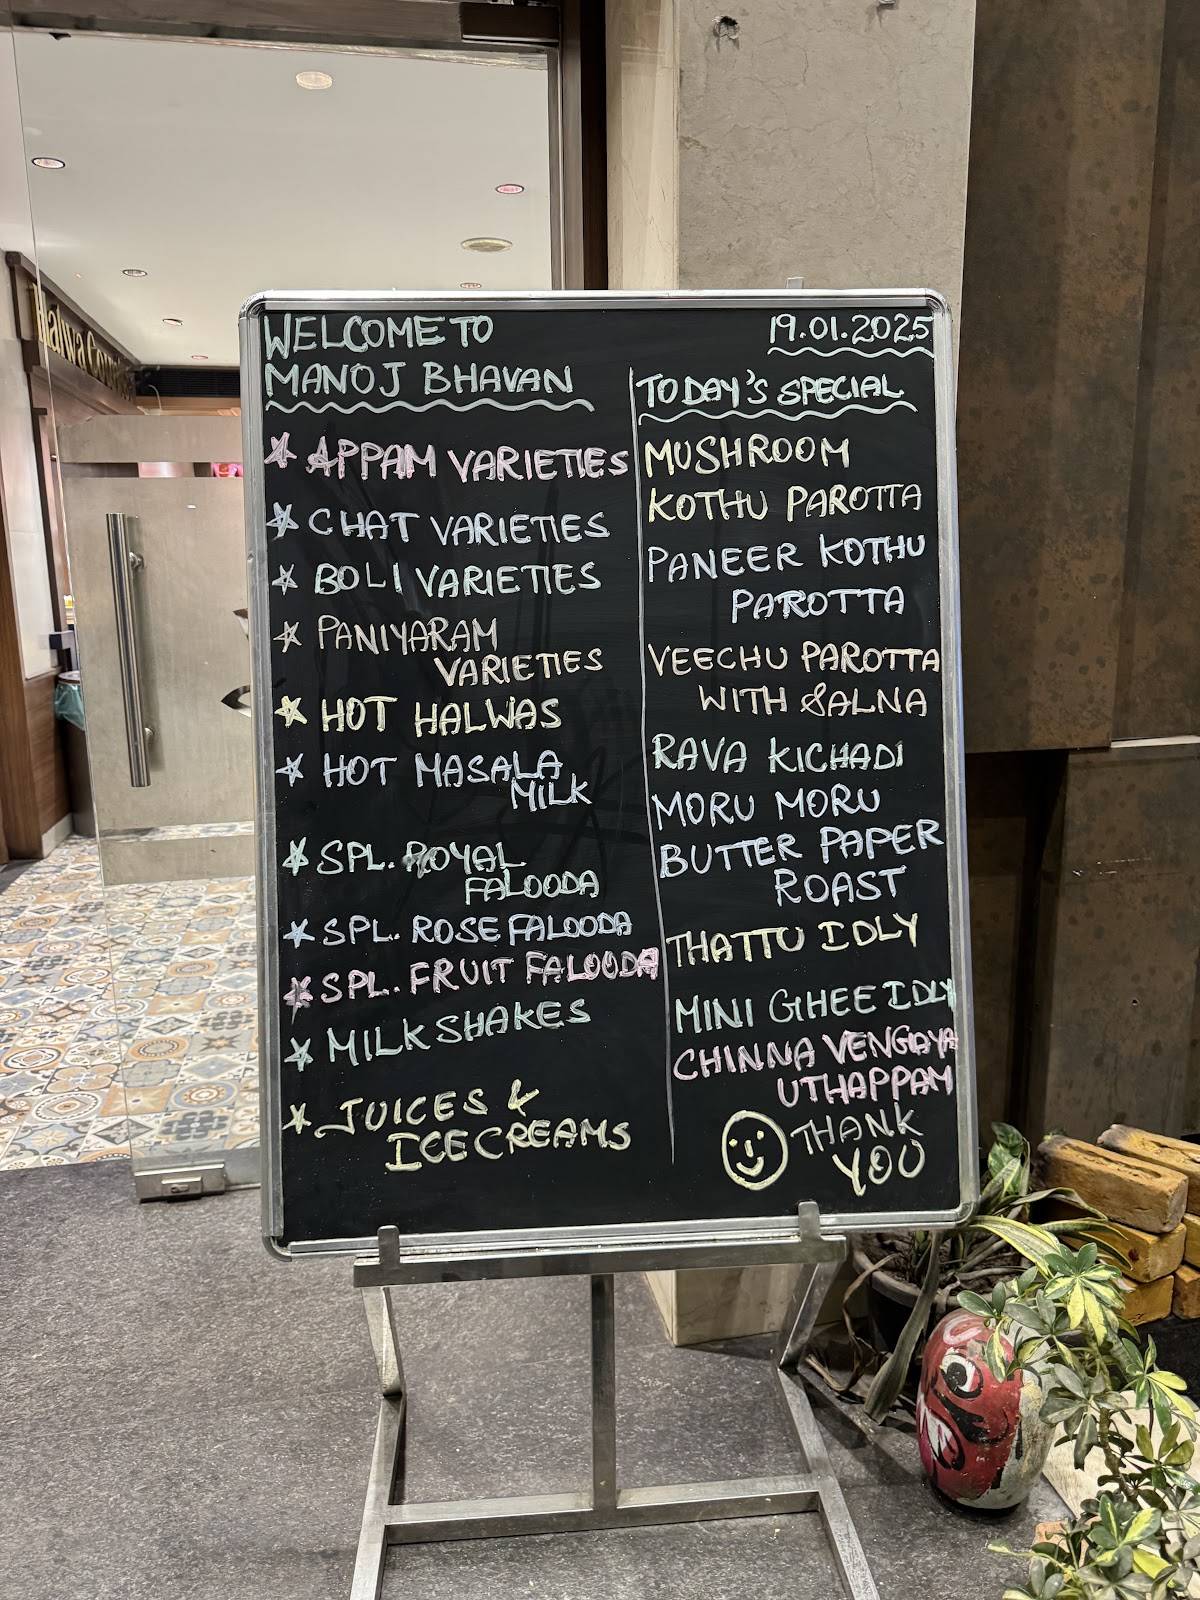 Halwa Coun
WELCOME TO
MANOJ BHAVAN
★ APPAM VARIETIES
★ CHAT VARIETIES
★ BOLI VARIETIES
★ PANIYARAM
VARIETIES
★ HOT HALWAS
★ HOT MASALA
MILK
★ SPL. ROYAL
FALOODA
★ SPL. ROSE FALOODA
★ SPL. FRUIT FALOODA
★ MILKSHAKES
★ JUICES &
ICECREAMS
19.01.2025
TODAY'S SPECIAL
MUSHROOM
KOTHU PAROTTA
PANEER KOTHU
PAROTTA
VEECHU PAROTTA
WITH SALNA
RAVA KICHADI
MORU MORU
BUTTER PAPER
ROAST
THATTU IDLY
MINI GHEE IDLY
CHINNA VENGAYA
UTHAPPAM
THANK
YOU